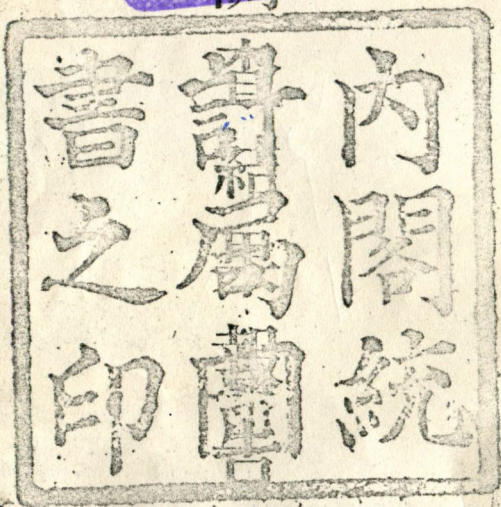 内閣統
計局圖
書之印
新